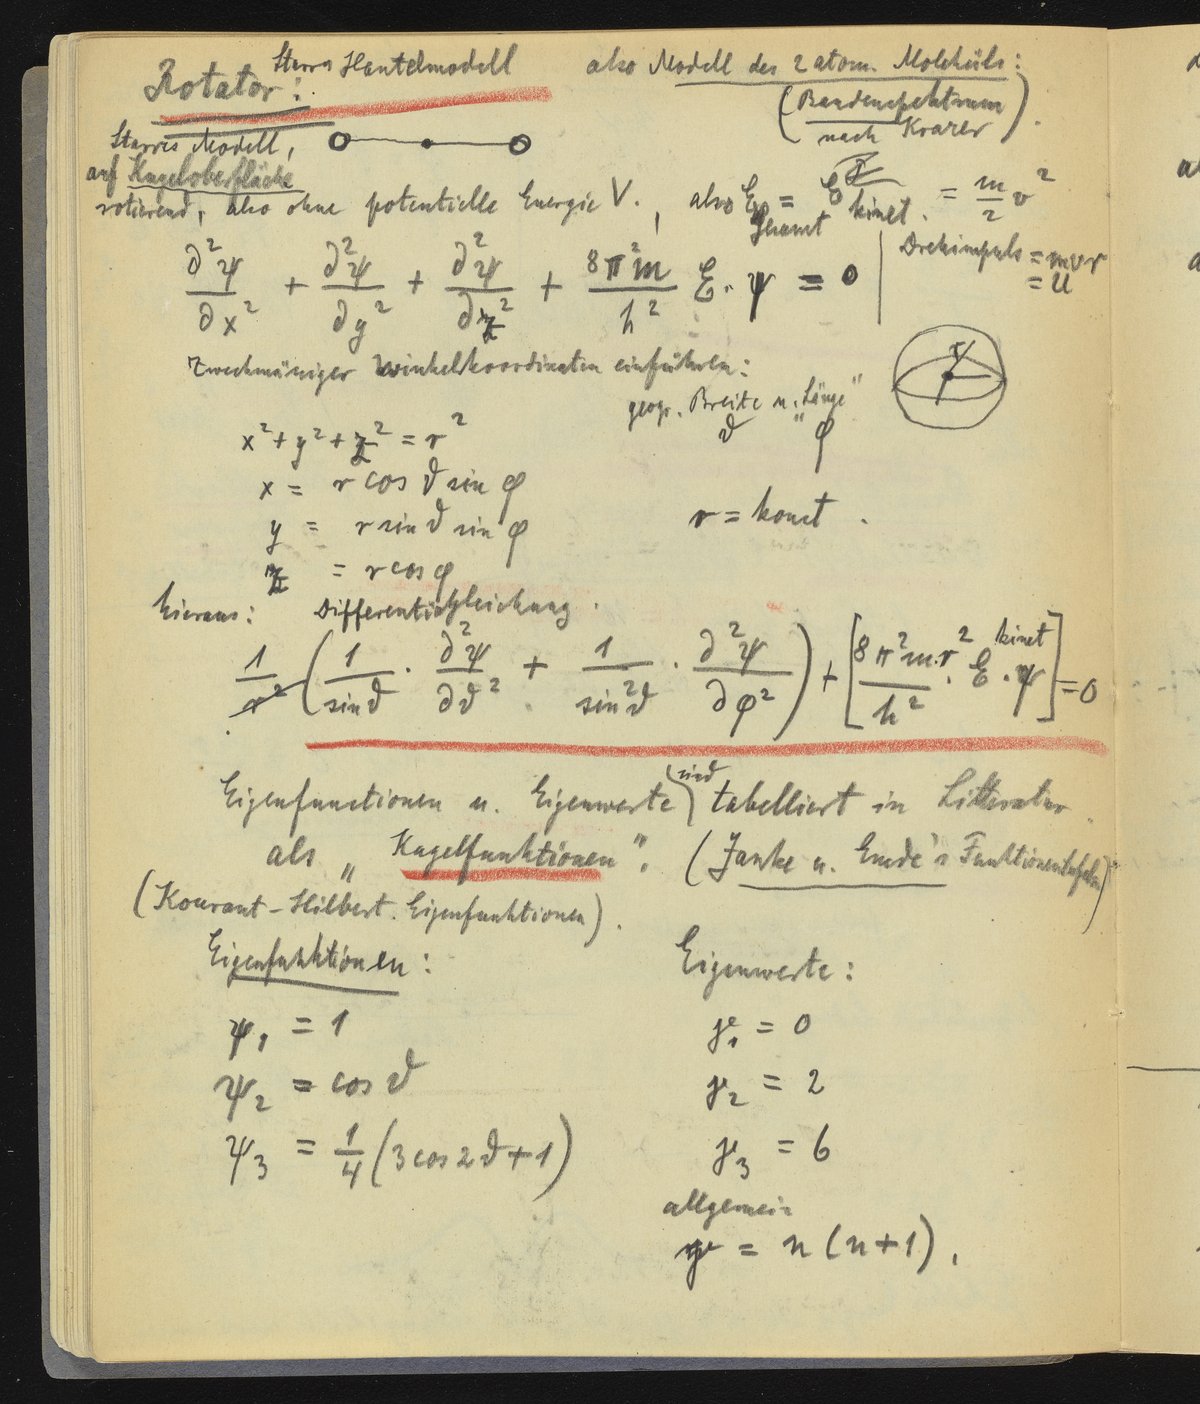 Rotator: Starres Hantelmodell also Modell des 2 atom. Moleküls:
(Bandenspektrum
nach Kratzer).
Starres Modell,
auf Kugeloberfläche
rotierend, also ohne potentielle Energie V., also E gesamt = E kinet. = m/2 v²
Drehimpuls = mvr
= U
∂²ψ/∂x² + ∂²ψ/∂y² + ∂²ψ/∂z² + 8π²m/h² E·ψ = 0
Zweckmäniger Winkelkoordinaten einführen:
geogr. Breite u. "Länge"
ϑ φ
r
x² + y² + z² = r²
x = r cos ϑ sin φ
y = r sin ϑ sin φ
r = konst.
z = r cos φ
hieraus: Differentialgleichung.
1/r² (1/sin ϑ · ∂²ψ/∂ϑ² + 1/sin²ϑ · ∂²ψ/∂φ²) + [8π²m·r²/h² · E kinet · ψ] = 0
Eigenfunctionen u. Eigenwerte sind tabelliert in Litteratur.
als „Kugelfunktionen". (Janke u. Emde's Funktionentafeln)
(Kourant-Hilbert. Eigenfunktionen).
Eigenfunktionen: Eigenwerte:
ψ₁ = 1 γ₁ = 0
ψ₂ = cos ϑ γ₂ = 2
ψ₃ = 1/4 (3 cos 2ϑ + 1) γ₃ = 6
allgemein
γ = n (n+1).